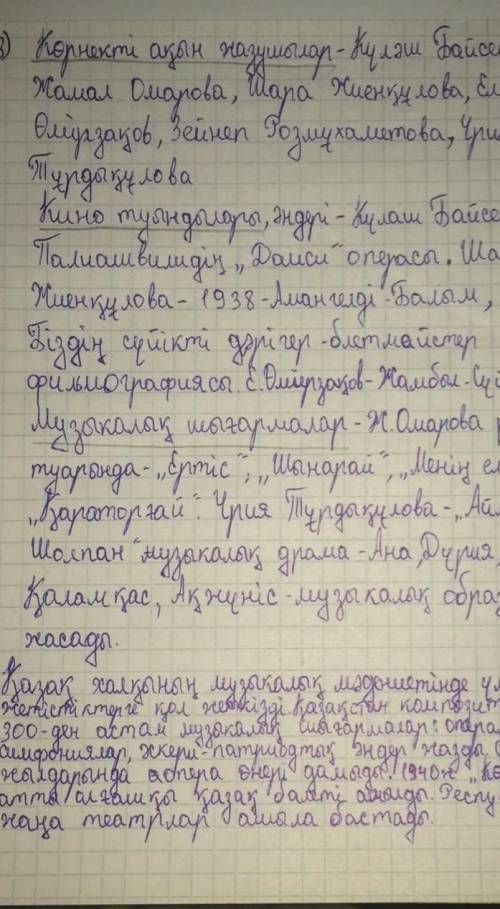 3) Көрнекті ақын жазушылар - Күләш Байсе
Жамал Омарова, Шара Жиенқұлова, Ел
Өмірзақов, Зейнеп Розмұхаметова, Үри
Тұрдықұлова
Кино туындылары, әндері - Күлаш Байсе
Палиашвилидің „Даиси" операсы. Ша
Жиенқұлова - 1938 - Амангелді - Балым,
Біздің сүйікті дәрігер - блетмайстер
фильмографиясы. Е.Өмірзақов - Жамбыл - Сүй
Музыкалық шығармалар - Ж.Омарова р
туарында - „Ертіс", „Шынарай", „Менің ел
„Қараторғай". Үрия Тұрдықұлова - „Айм
Шолпан" музыкалық драма - Ана, Дурия,
Қаламқас, Ақжүніс - музыкалық обра
жасады.
Қазақ халқының музыкалық мәдениетінде үл
жетістіктерге қол жеткізді. Қазақстан композит
300-ден астам музыкалық шығармалар: опера
симфониялар, әскери-патриоттық әндер жазды.
жылдарында опера өнері дамыды. 1940ж „Кө
атты алғашқы қазақ балеті ашылды. Респу
жаңа театрлар ашыла бастады.